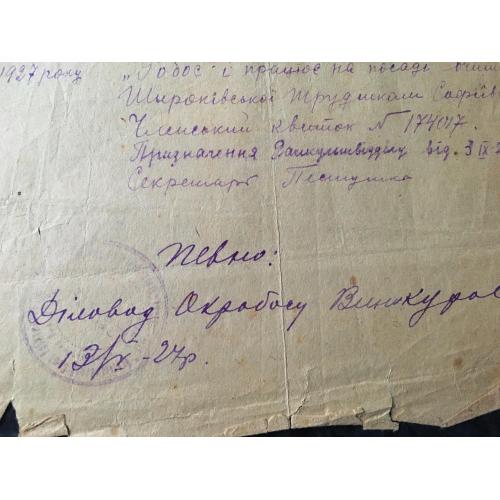 1927 року „Робос" і працює на посаді
Широківської Трудшколи Софіїв
Членський квиток N 174047.
Призначення Райкультвідділу від. 3 IX
Секретарь Пестушко
Певно:
Діловод Окробосу Винокуров
13/IX-27р.